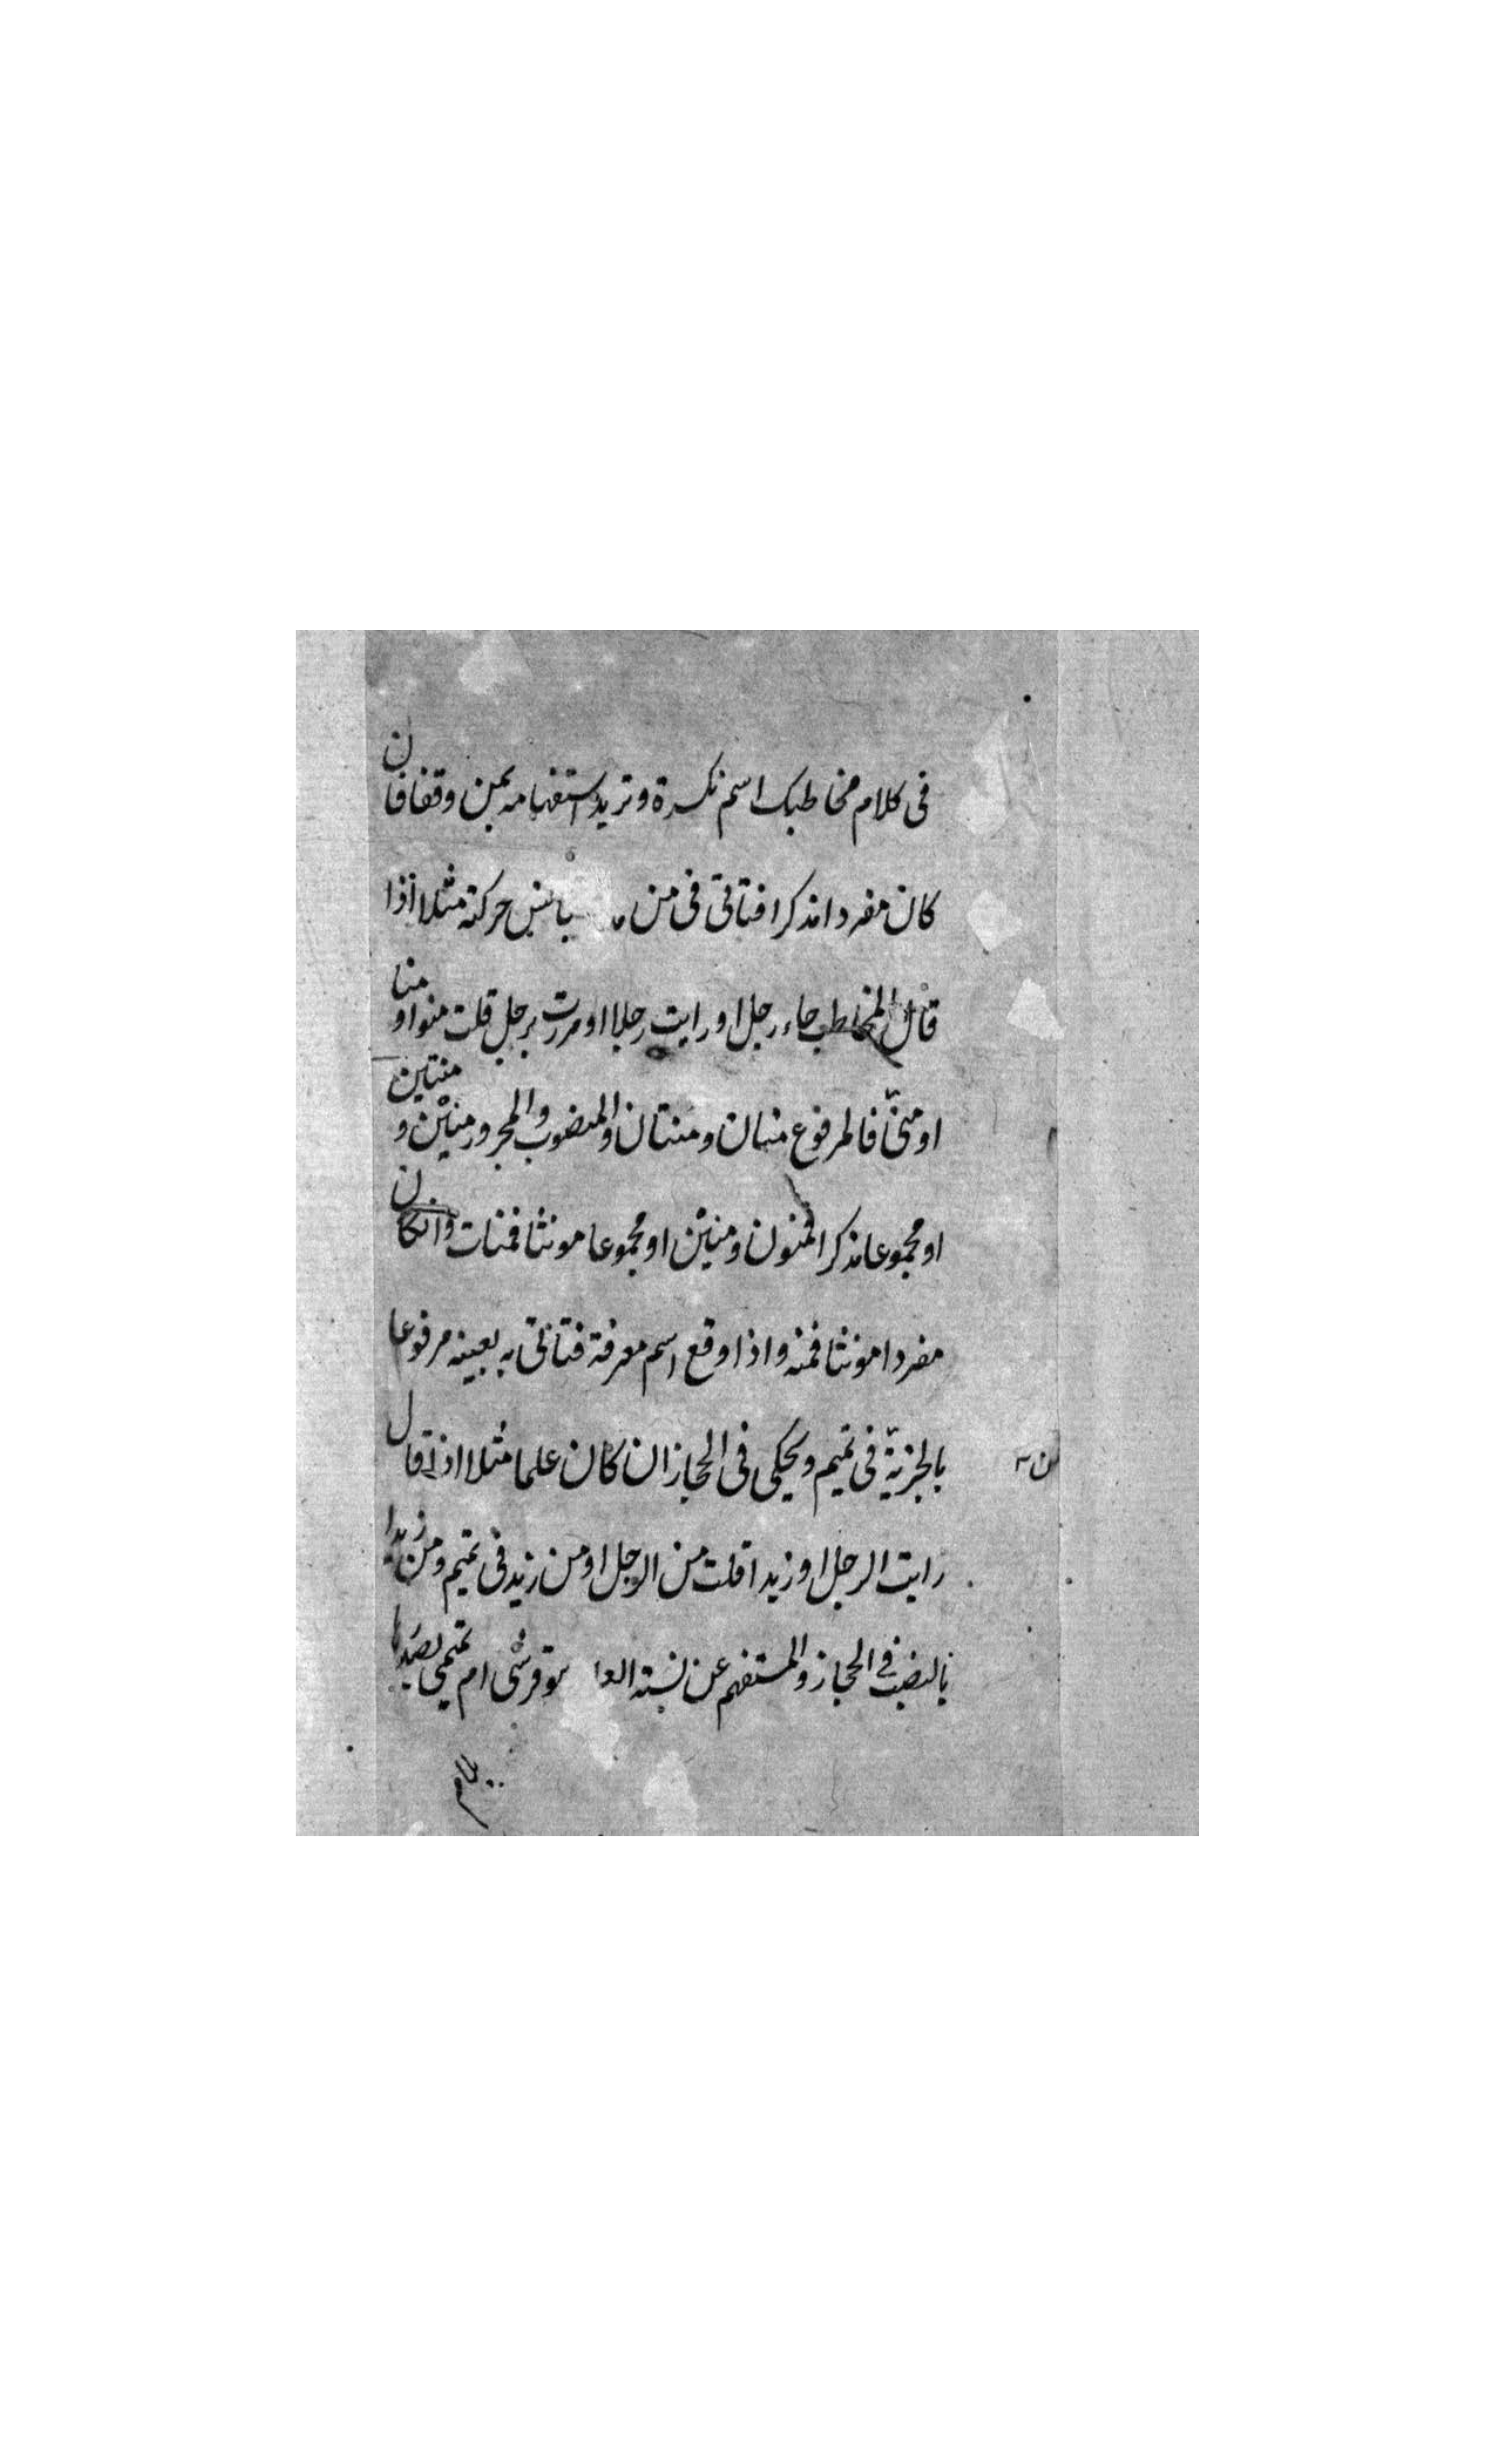 في كلام مخاطبك اسم نكرة و تريد استفهامه بمن وقفا فان
كان مفردا مذكرا فتاتي في من يجانس حركته مثلا اذا
قال المخاطب جاء رجل او رايت رجلا او مررت برجل قلت منو او منا
او مثنى فالمرفوع منان و منتان والمنصوب والمجرور منين و منتين
او مجموعا مذكرا فمنون و منين او مجموعا مونثا فمنات وانكان
مفردا مونثا فمنه و اذا وقع اسم معرفة فتاتى به بعينه مرفوعا
بالخبرية في تميم و يحكى في الحجاز ان كان علما مثلا اذا قال
رايت الرجل او زيدا قلت من الرجل او من زيد في تميم و من زيدا
بالنصب في الحجاز والمستفهم عن نسبته قرشى ام تميمى